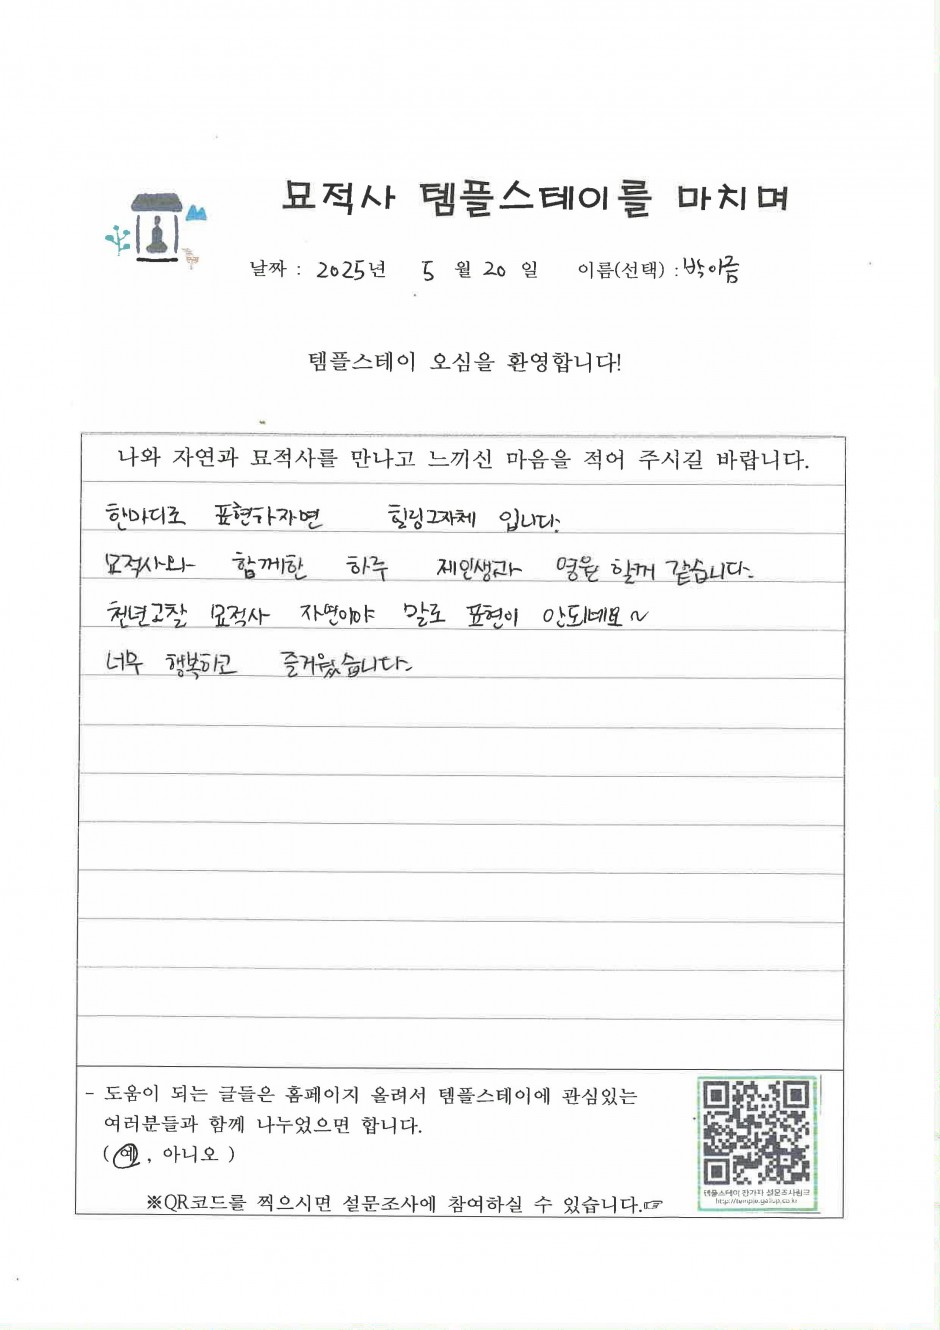 묘적사 템플스테이를 마치며
날짜 : 2025년 5 월 20 일 이름(선택) : 박이금
템플스테이 오심을 환영합니다!
나와 자연과 묘적사를 만나고 느끼신 마음을 적어 주시길 바랍니다.
한마디로 표현하자면 힐링그자체 입니다.
묘적사와 함께한 하루 제인생과 영원 할꺼 같습니다.
천년고찰 묘적사 자연이야 말로 표현이 안되네요~
너무 행복하고 즐거웠습니다.
- 도움이 되는 글들은 홈페이지 올려서 템플스테이에 관심있는
여러분들과 함께 나누었으면 합니다.
( 예 , 아니오 )
※QR코드를 찍으시면 설문조사에 참여하실 수 있습니다.☞
템플스테이 참가자 설문조사링크
http://temple.gallup.co.kr